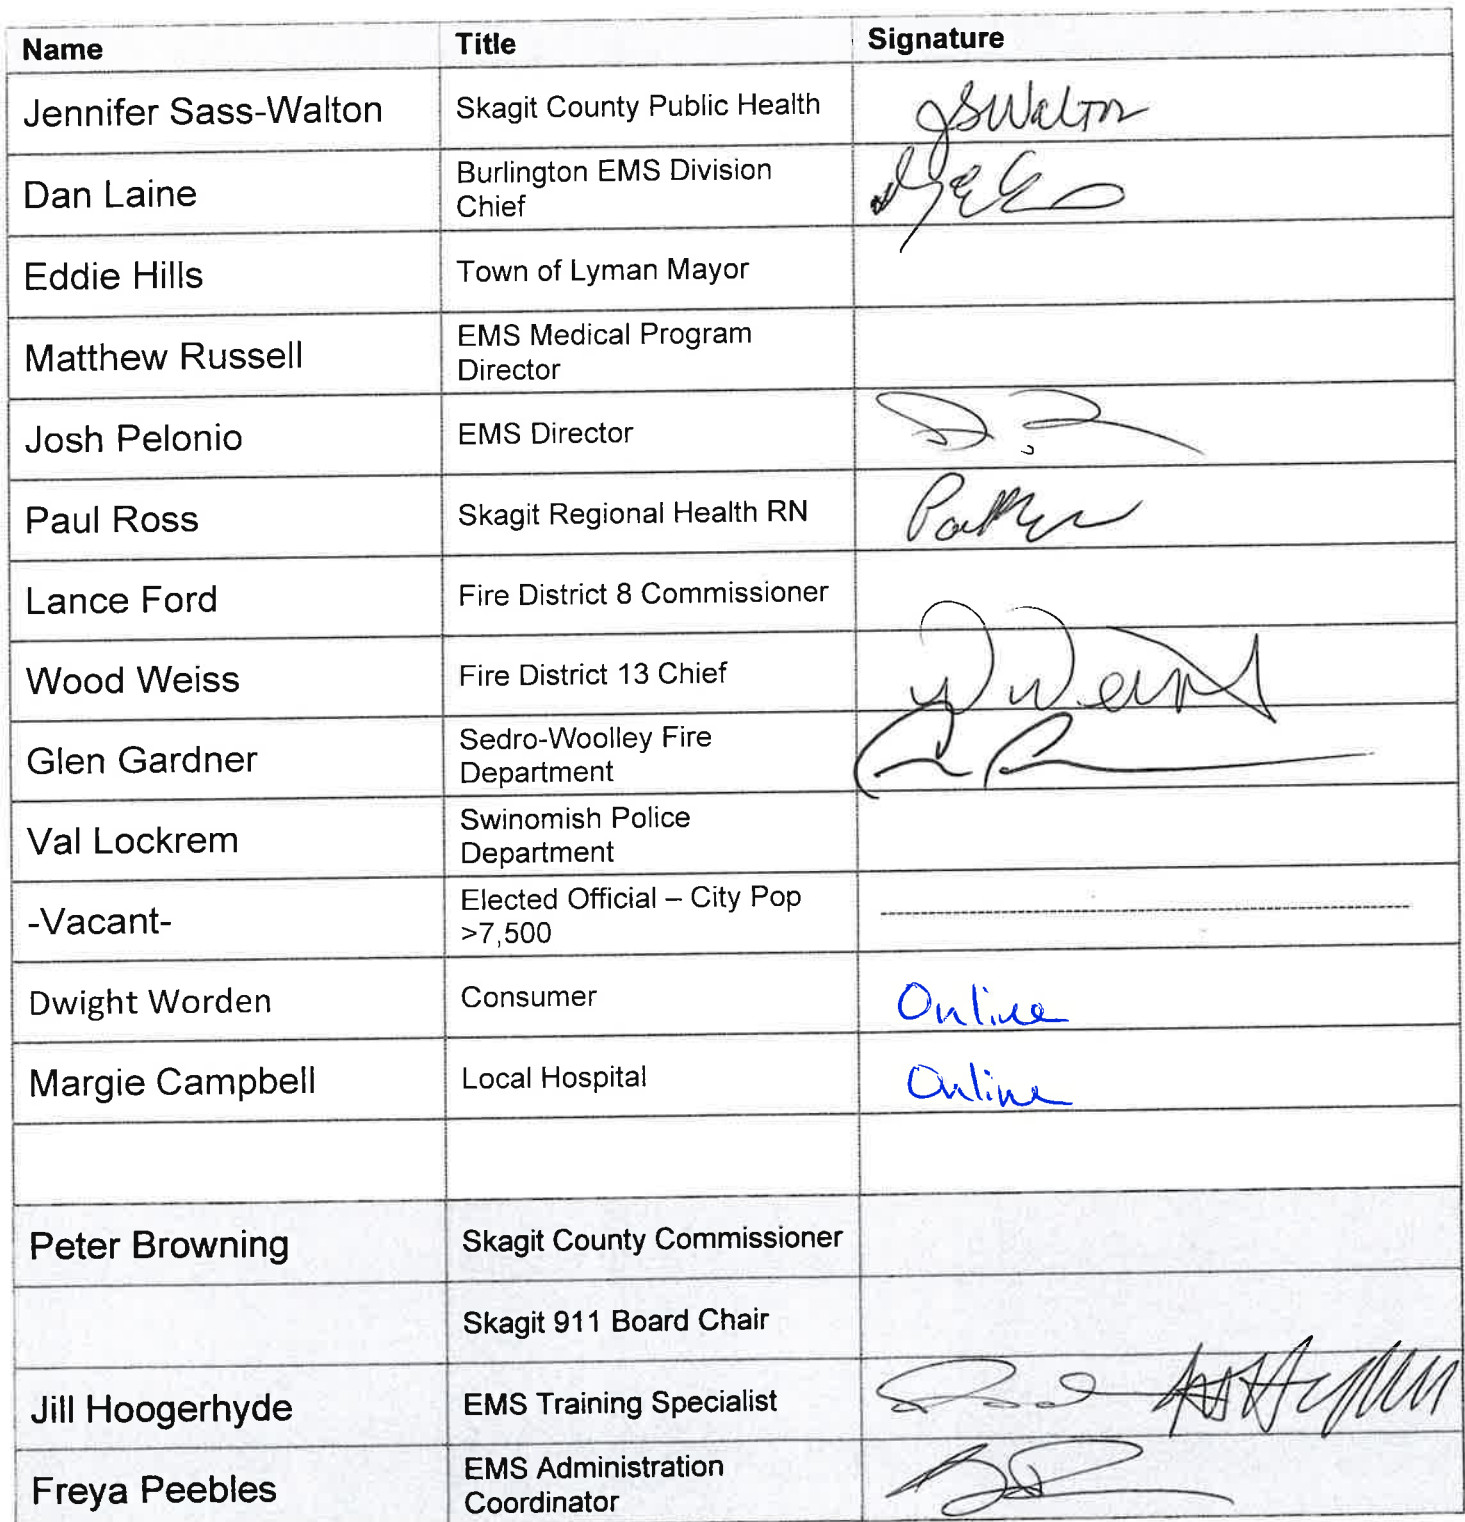 Name Title Signature
Jennifer Sass-Walton Skagit County Public Health JSWalton
Dan Laine Burlington EMS Division
Chief
Eddie Hills Town of Lyman Mayor
Matthew Russell EMS Medical Program
Director
Josh Pelonio EMS Director
Paul Ross Skagit Regional Health RN
Lance Ford Fire District 8 Commissioner
Wood Weiss Fire District 13 Chief
Glen Gardner Sedro-Woolley Fire
Department
Val Lockrem Swinomish Police
Department
-Vacant- Elected Official – City Pop
>7,500
Dwight Worden Consumer Online
Margie Campbell Local Hospital Online
Peter Browning Skagit County Commissioner
Skagit 911 Board Chair
Jill Hoogerhyde EMS Training Specialist
Freya Peebles EMS Administration
Coordinator